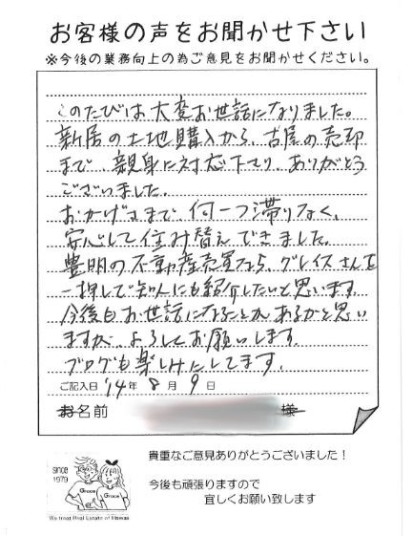 お客様の声をお聞かせ下さい
※今後の業務向上の為ご意見をお聞かせください。
このたびは大変お世話になりました。
新居の土地購入から、古屋の売却
まで、親身に対応下さり、ありがとう
ございました。
おかげさまで何一つ滞りなく、
安心して住み替えできました。
豊明の不動産売買なら、グレイスさんを
一押しで知人にも紹介したいと思います。
今後もお世話になることがあるかと思い
ますが、よろしくお願いします。
ブログも楽しみにしてます。
ご記入日 '14年 8月 9日
お名前 様
since
1979
Grace
Grace
貴重なご意見ありがとうございました！
今後も頑張りますので
宜しくお願い致します